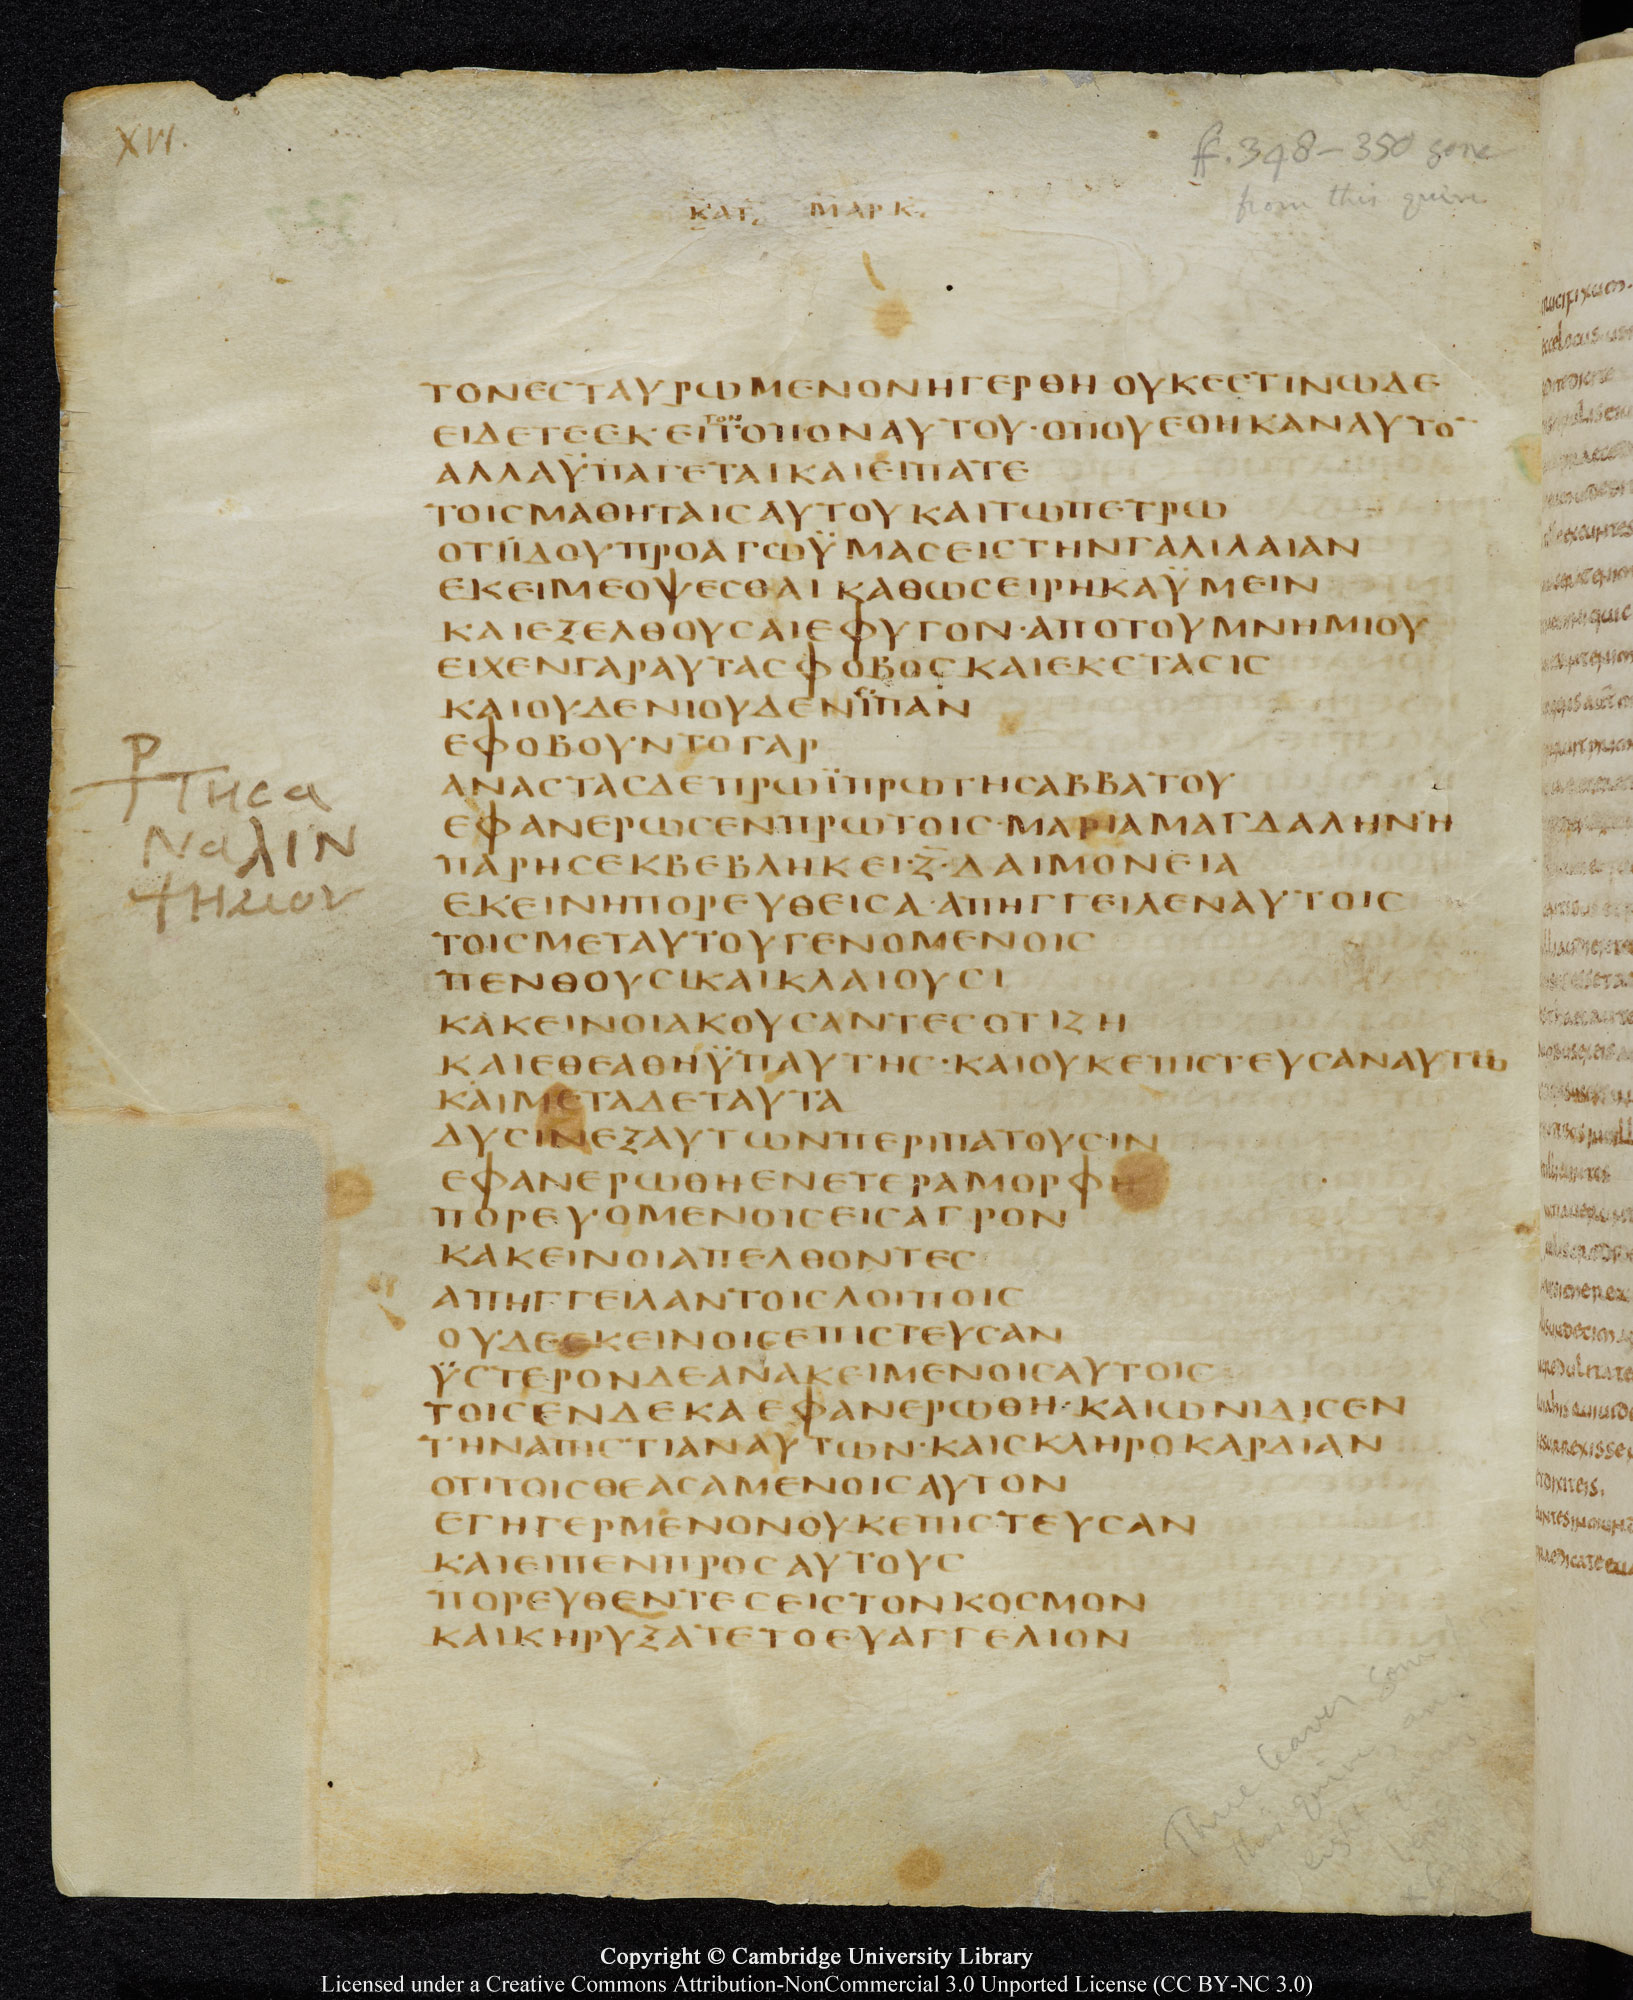 XVI.
ff. 348–350 gone
from this quire
ΚΑΤ. ΜΑΡΚ.
ΤΟΝΕСΤΑΥΡωΜΕΝΟΝΗΓΕΡΘΗ ΟΥΚΕСΤΙΝωΔΕ
ΤΟΝ
ΕΙΔΕΤΕΕΚΕΙΤΟΠΟΝΑΥΤΟΥ·ΟΠΟΥΕΘΗΚΑΝΑΥΤΟ̅
ΑΛΛΑΫΠΑΓΕΤΑΙΚΑΙΕΙΠΑΤΕ
ΤΟΙСΜΑΘΗΤΑΙСΑΥΤΟΥΚΑΙΤωΠΕΤΡω
ΟΤΙΪΔΟΥΠΡΟΑΓωΫΜΑСΕΙСΤΗΝΓΑΛΙΛΑΙΑΝ
ΕΚΕΙΜΕΟΨΕСΘΑΙ ΚΑΘωСΕΙΡΗΚΑΫΜΕΙΝ
ΚΑΙΕΞΕΛΘΟΥСΑΙΕΦΥΓΟΝ·ΑΠΟΤΟΥΜΝΗΜΙΟΥ
ΕΙΧΕΝΓΑΡΑΥΤΑСΦΟΒΟСΚΑΙΕΚСΤΑСΙС
ΚΑΙΟΥΔΕΝΙΟΥΔΕΝΕΙΠΑΝ
ΕΦΟΒΟΥΝΤΟΓΑΡ
ΑΝΑСΤΑСΔΕΠΡωΪΠΡωΤΗСΑΒΒΑΤΟΥ
ΕΦΑΝΕΡωСΕΝΠΡωΤΟΙС·ΜΑΡΙΑΜΑΓΔΑΛΗΝΗ
ΠΑΡΗСΕΚΒΕΒΛΗΚΕΙ·Ζ̅·ΔΑΙΜΟΝΕΙΑ
ΕΚΕΙΝΗΠΟΡΕΥΘΕΙСΑ·ΑΠΗΓΓΕΙΛΕΝΑΥΤΟΙС
ΤΟΙСΜΕΤΑΥΤΟΥΓΕΝΟΜΕΝΟΙС
ΠΕΝΘΟΥСΙΚΑΙΚΛΑΙΟΥСΙ
ΚΑΚΕΙΝΟΙΑΚΟΥСΑΝΤΕСΟΤΙΖΗ
ΚΑΙΕΘΕΑΘΗΫΠΑΥΤΗС·ΚΑΙΟΥΚΕΠΙСΤΕΥСΑΝΑΥΤω
ΚΑΙΜΕΤΑΔΕΤΑΥΤΑ
ΔΥСΙΝΕΞΑΥΤωΝΠΕΡΙΠΑΤΟΥСΙΝ
ΕΦΑΝΕΡωΘΗΕΝΕΤΕΡΑΜΟΡΦΗ
ΠΟΡΕΥΟΜΕΝΟΙСΕΙСΑΓΡΟΝ
ΚΑΚΕΙΝΟΙΑΠΕΛΘΟΝΤΕС
ΑΠΗΓΓΕΙΛΑΝΤΟΙСΛΟΙΠΟΙС
ΟΥΔΕΕΚΕΙΝΟΙСΕΠΙСΤΕΥСΑΝ
ΫСΤΕΡΟΝΔΕΑΝΑΚΕΙΜΕΝΟΙСΑΥΤΟΙС
ΤΟΙСΕΝΔΕΚΑΕΦΑΝΕΡωΘΗ·ΚΑΙωΝΙΔΙСΕΝ
ΤΗΝΑΠΙСΤΙΑΝΑΥΤωΝ·ΚΑΙСΚΛΗΡΟΚΑΡΔΙΑΝ
ΟΤΙΤΟΙСΘΕΑСΑΜΕΝΟΙСΑΥΤΟΝ
ΕΓΗΓΕΡΜΕΝΟΝΟΥΚΕΠΙСΤΕΥСΑΝ
ΚΑΙΕΙΠΕΝΠΡΟСΑΥΤΟΥС
ΠΟΡΕΥΘΕΝΤΕСΕΙСΤΟΝΚΟСΜΟΝ
ΚΑΙΚΗΡΥΞΑΤΕΤΟΕΥΑΓΓΕΛΙΟΝ
ΤΗСΑ
ΝΑΛΙΝ
ΨΗΜΟΝ
Three leaves gone
this quire
Copyright © Cambridge University Library
Licensed under a Creative Commons Attribution-NonCommercial 3.0 Unported License (CC BY-NC 3.0)